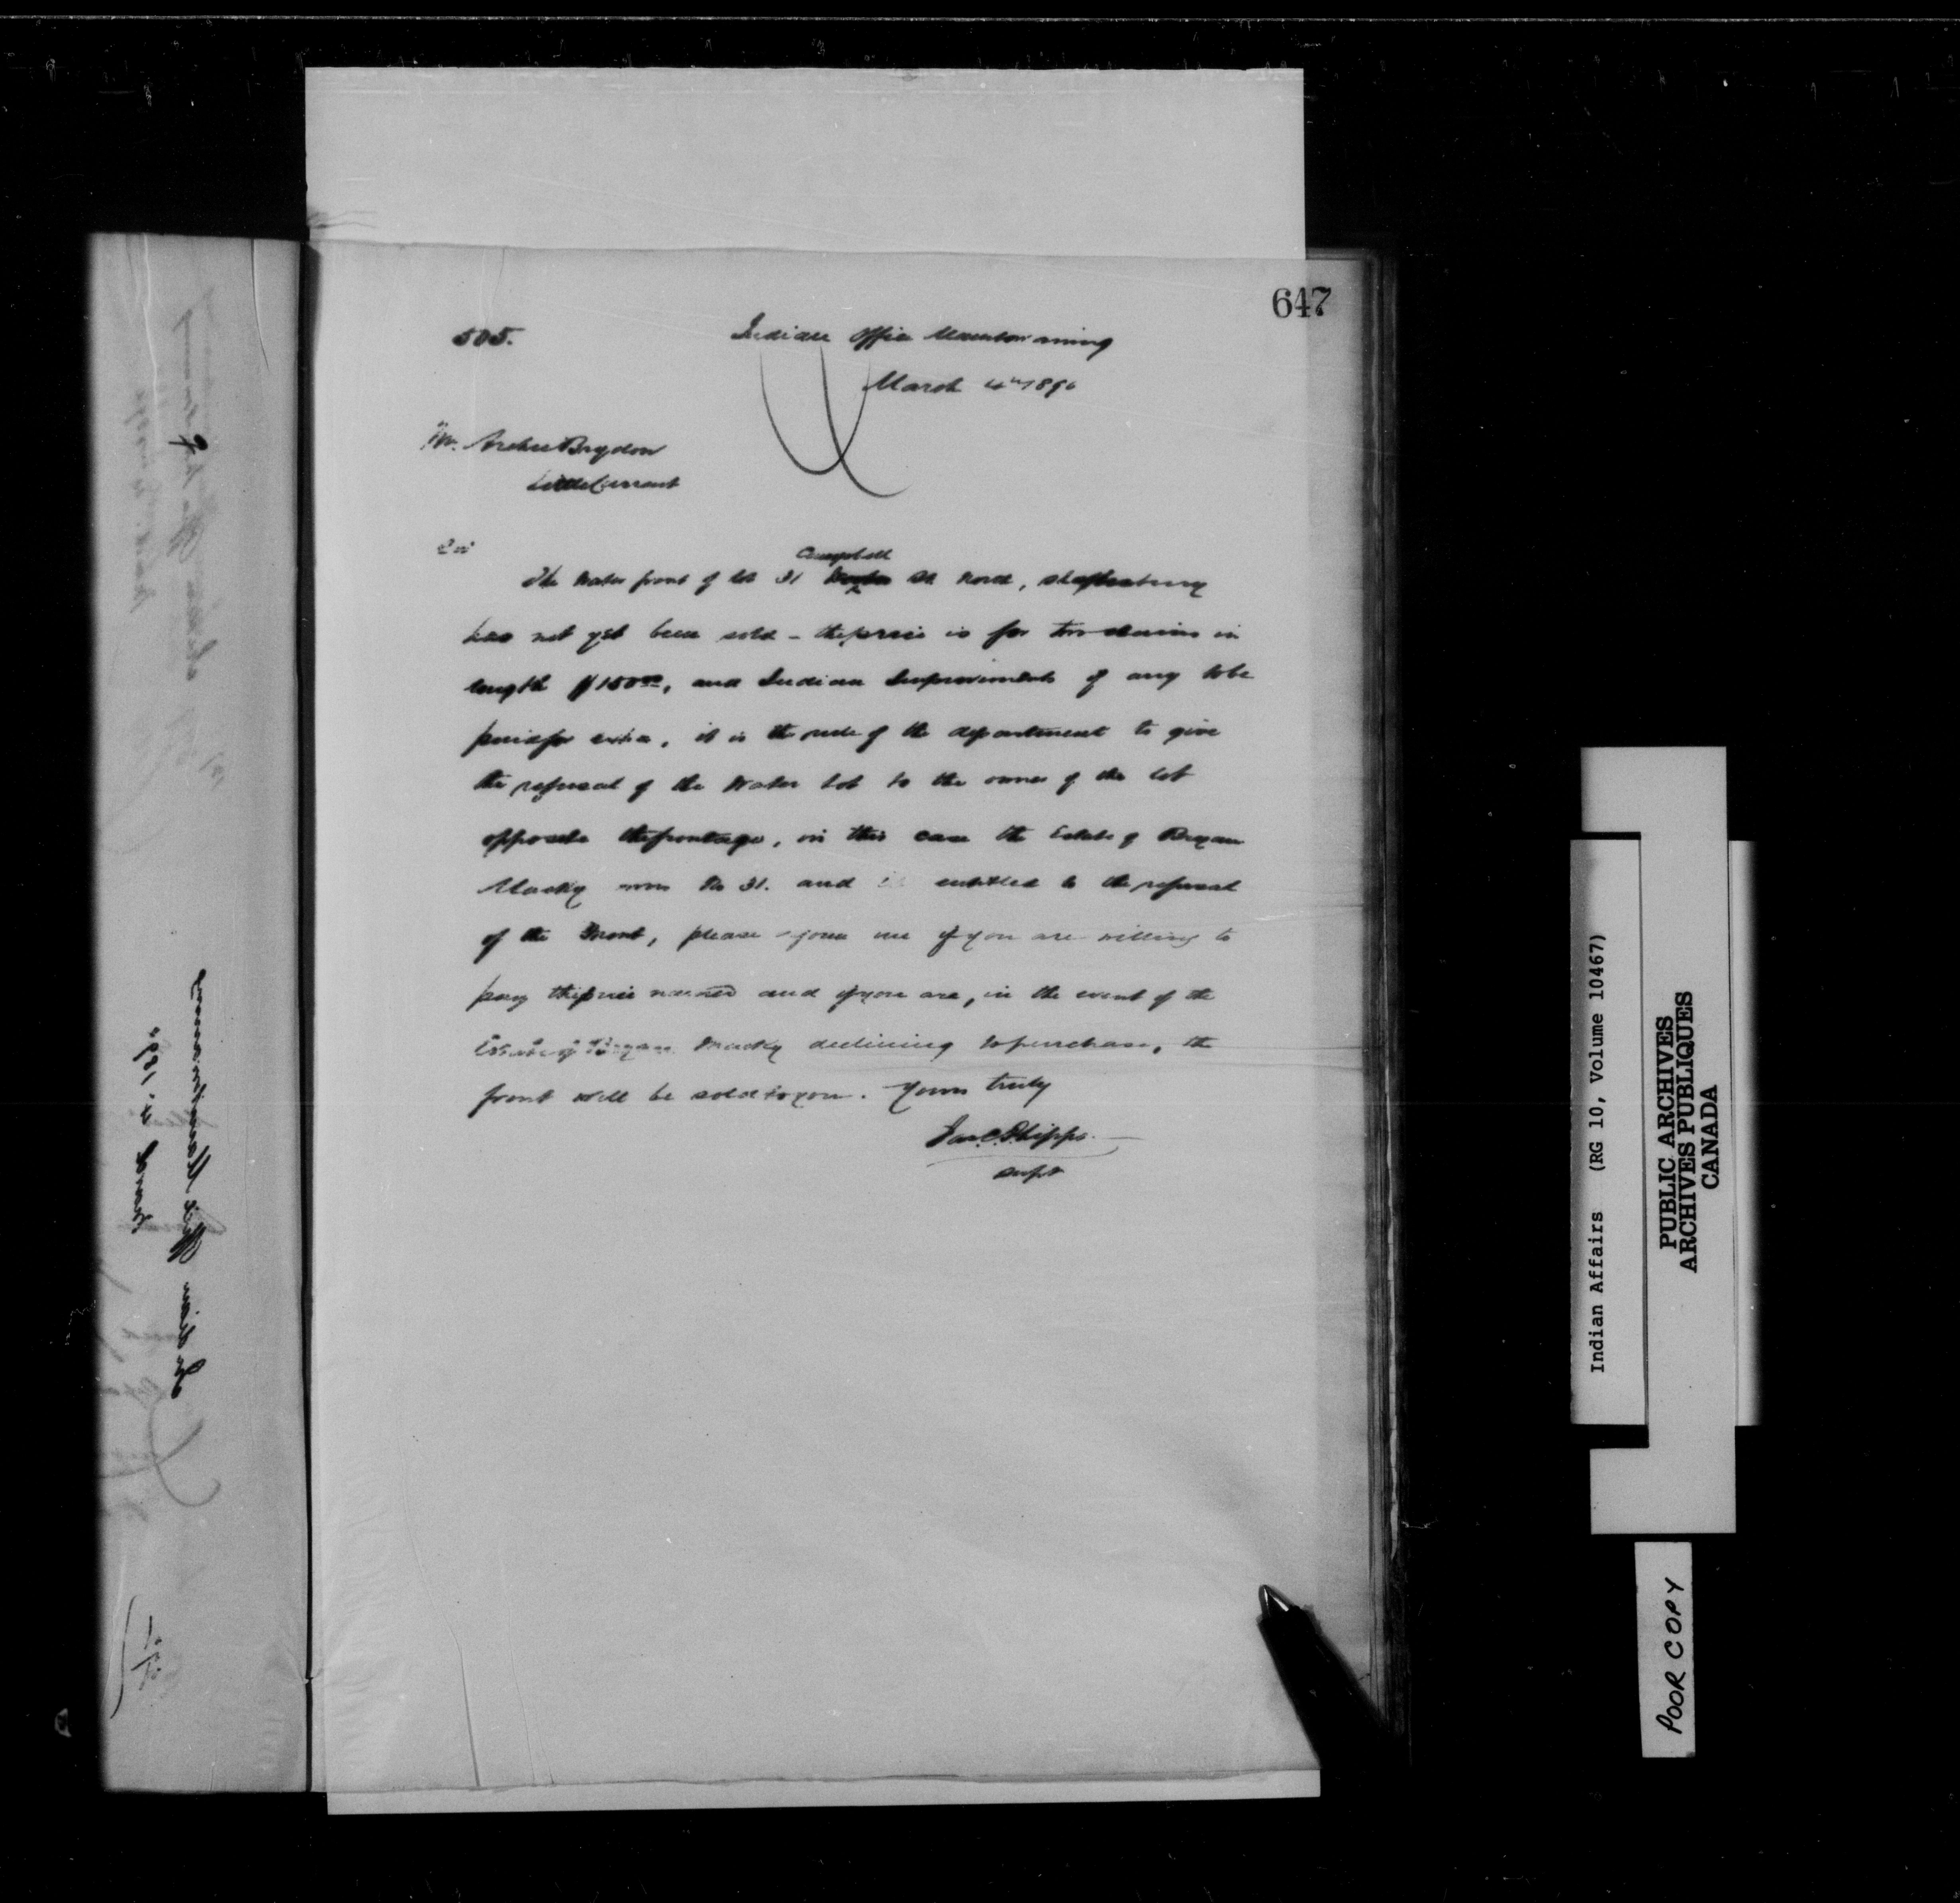 647
505.
Indian Office Manitowaning
March 4th 1890
Mr. Archie Brydon
Little Current
Sir
Campbell
The Water front of lot 31 Water St North, Shaftesbury
has not yet been sold – the price is for two chains in
length $150.00, and Indian Improvements if any to be
paid for extra, it is the rule of the department to give
the refusal of the Water Lot to the owner of the lot
opposite the frontage, in this case the Estate of Bryan
Macky own No 31. and is entitled to the refusal
of the Front, please inform me if you are willing to
pay the price named and if you are, in the event of the
Estate of Bryan Macky declining to purchase, the
front will be sold to you. Yours truly
Jas. C. Phipps.
Supt
Indian Office Manitowaning
March 4. 1890
Indian Affairs (RG 10, Volume 10467)
PUBLIC ARCHIVES
ARCHIVES PUBLIQUES
CANADA
POOR COPY